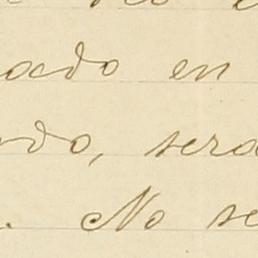 ado en
do, sera
. No se